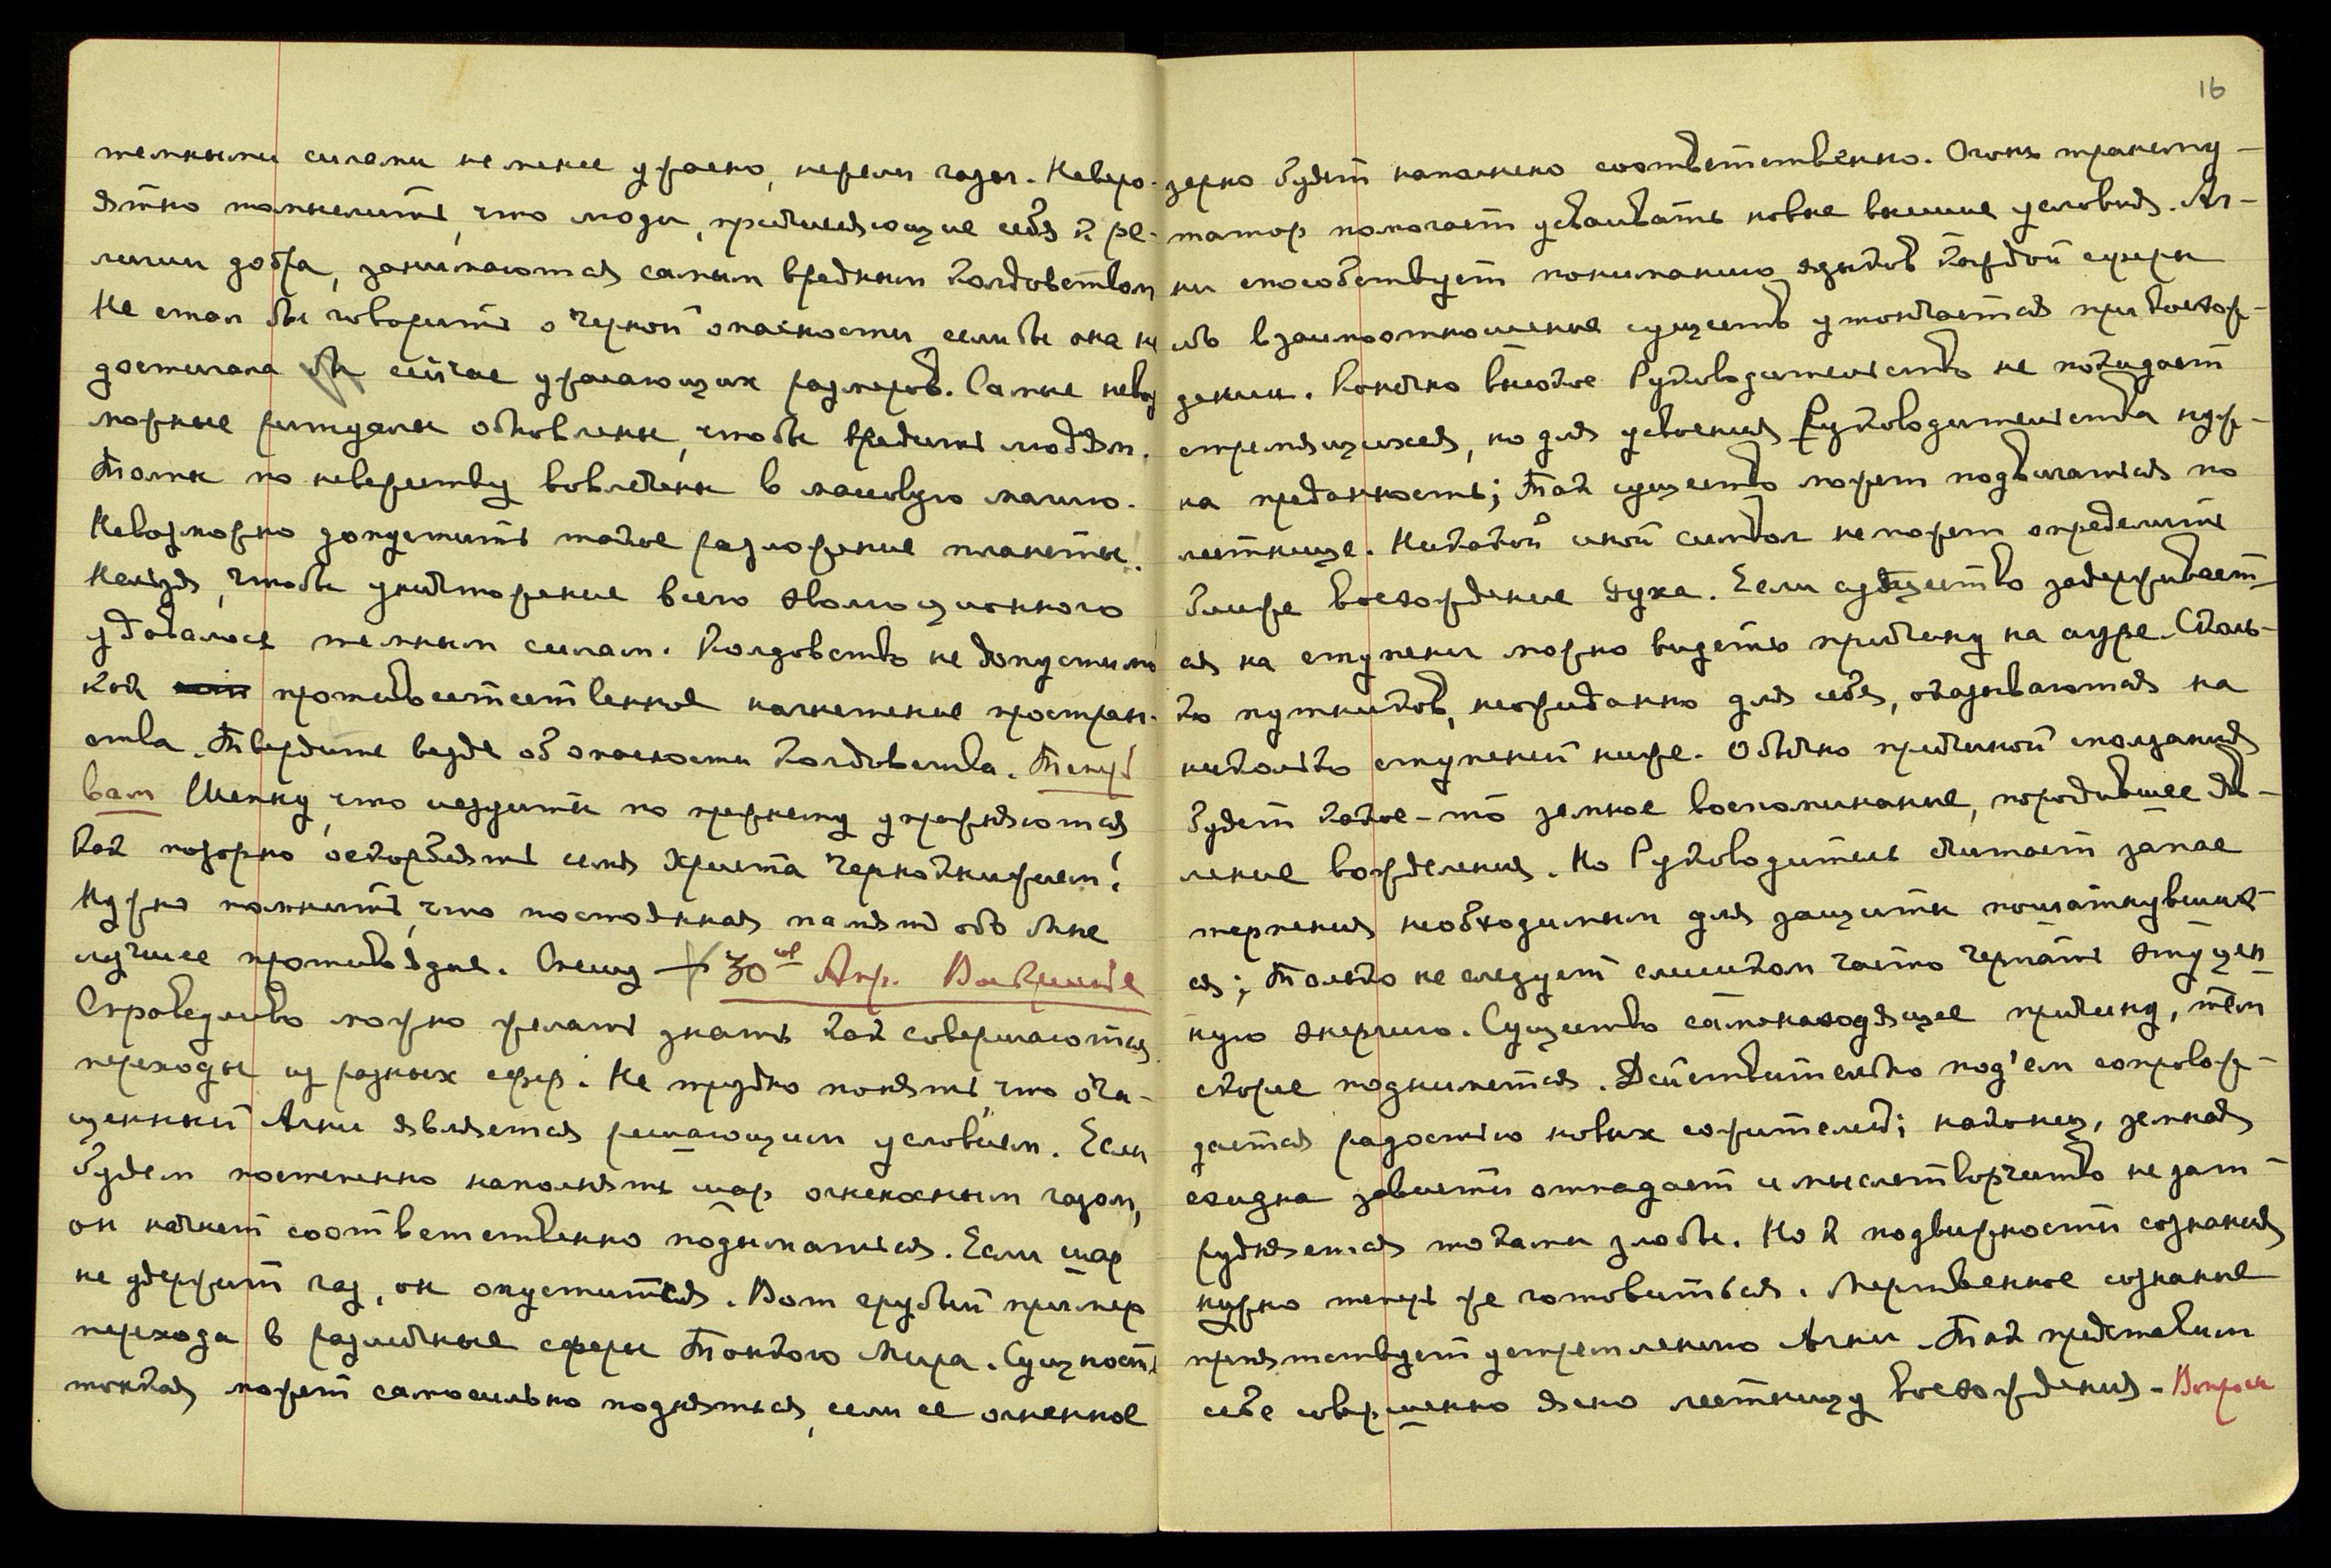 темными силами не менее ужасно, нежели газы. Неверо-
ятно помыслить, что люди, причисляющие себя к ре-
лигии добра, занимаются самым вредным колдовством
Не стал бы говорить о черной опасности если бы она не
достигала сейчас ужасающих размеров. Самые невоз
можные ритуалы обновлены, чтобы вредить людям.
Толпы по невежеству вовлечены в массовую магию.
Невозможно допустить такое разложение планеты!
Нельзя, чтобы уничтожение всего эволюционного
удавалось темным силам. Колдовство не допустимо
как противоестественное нагнетение простран-
ства. Твердите везде об опасности колдовства. Теперь
вам Шепну, что иезуиты по прежнему упражняются
Как позорно оскорблять имя Христа Чернокнижием!
Нужно помнить, что постоянная память обо Мне
лучшее противоядие. Спешу + 30ое Апр. Воскресенье
Справедливо можно желать знать как совершаются
переходы из разных сфер. Не трудно понять, что очи-
щенный Агни является решающим условием. Если
будем постепенно наполнять шар огненосным газом,
он начнет соответственно подыматься. Если шар
не удержит газ, он опустится. Вот грубый пример
перехода в различные сферы Тонкого Мира. Сущность
тонкая может самосильно подняться, если ее огненное
16
зерно будет наполнено соответственно. Огонь трансму-
татор помогает усваивать новые высшие условия. Аг-
ни способствует пониманию языков каждой сферы
ибо взаимоотношение существ утончается при восхож-
дении. Конечно высокое Руководительство не покидает
стремящихся, но для усвоения Руководительства нуж-
на преданность; Так существо может подвигаться по
лестнице. Никакой иной символ не может определить
ближе восхождение духа. Если существо задерживает-
ся на ступени можно видеть причину на ауре. Сколь-
ко путников, неожиданно для себя, оказываются на
несколько ступеней ниже. Обычно причиной сползания
будет какое-то земное воспоминание, породившее яв-
ление вожделения. Но Руководитель считает запас
терпения необходимым для защиты пошатнувшихся
ся; Только не следует слишком часто черпать эту цен
ную энергию. Существо самонаходящее причину, тем
скорее поднимется. Действительно под'ем сопровож-
дается радостью новых сожителей; наконец, земная
ехидна зависти отпадает и мыслетворчество не зат-
рудняется токами злобы. Но к подвижности сознания
нужно теперь же готовиться. Мертвенное сознание
препятствует устремлению Агни. Так представим
себе совершенно ясно лестницу восхождения. Вопросы